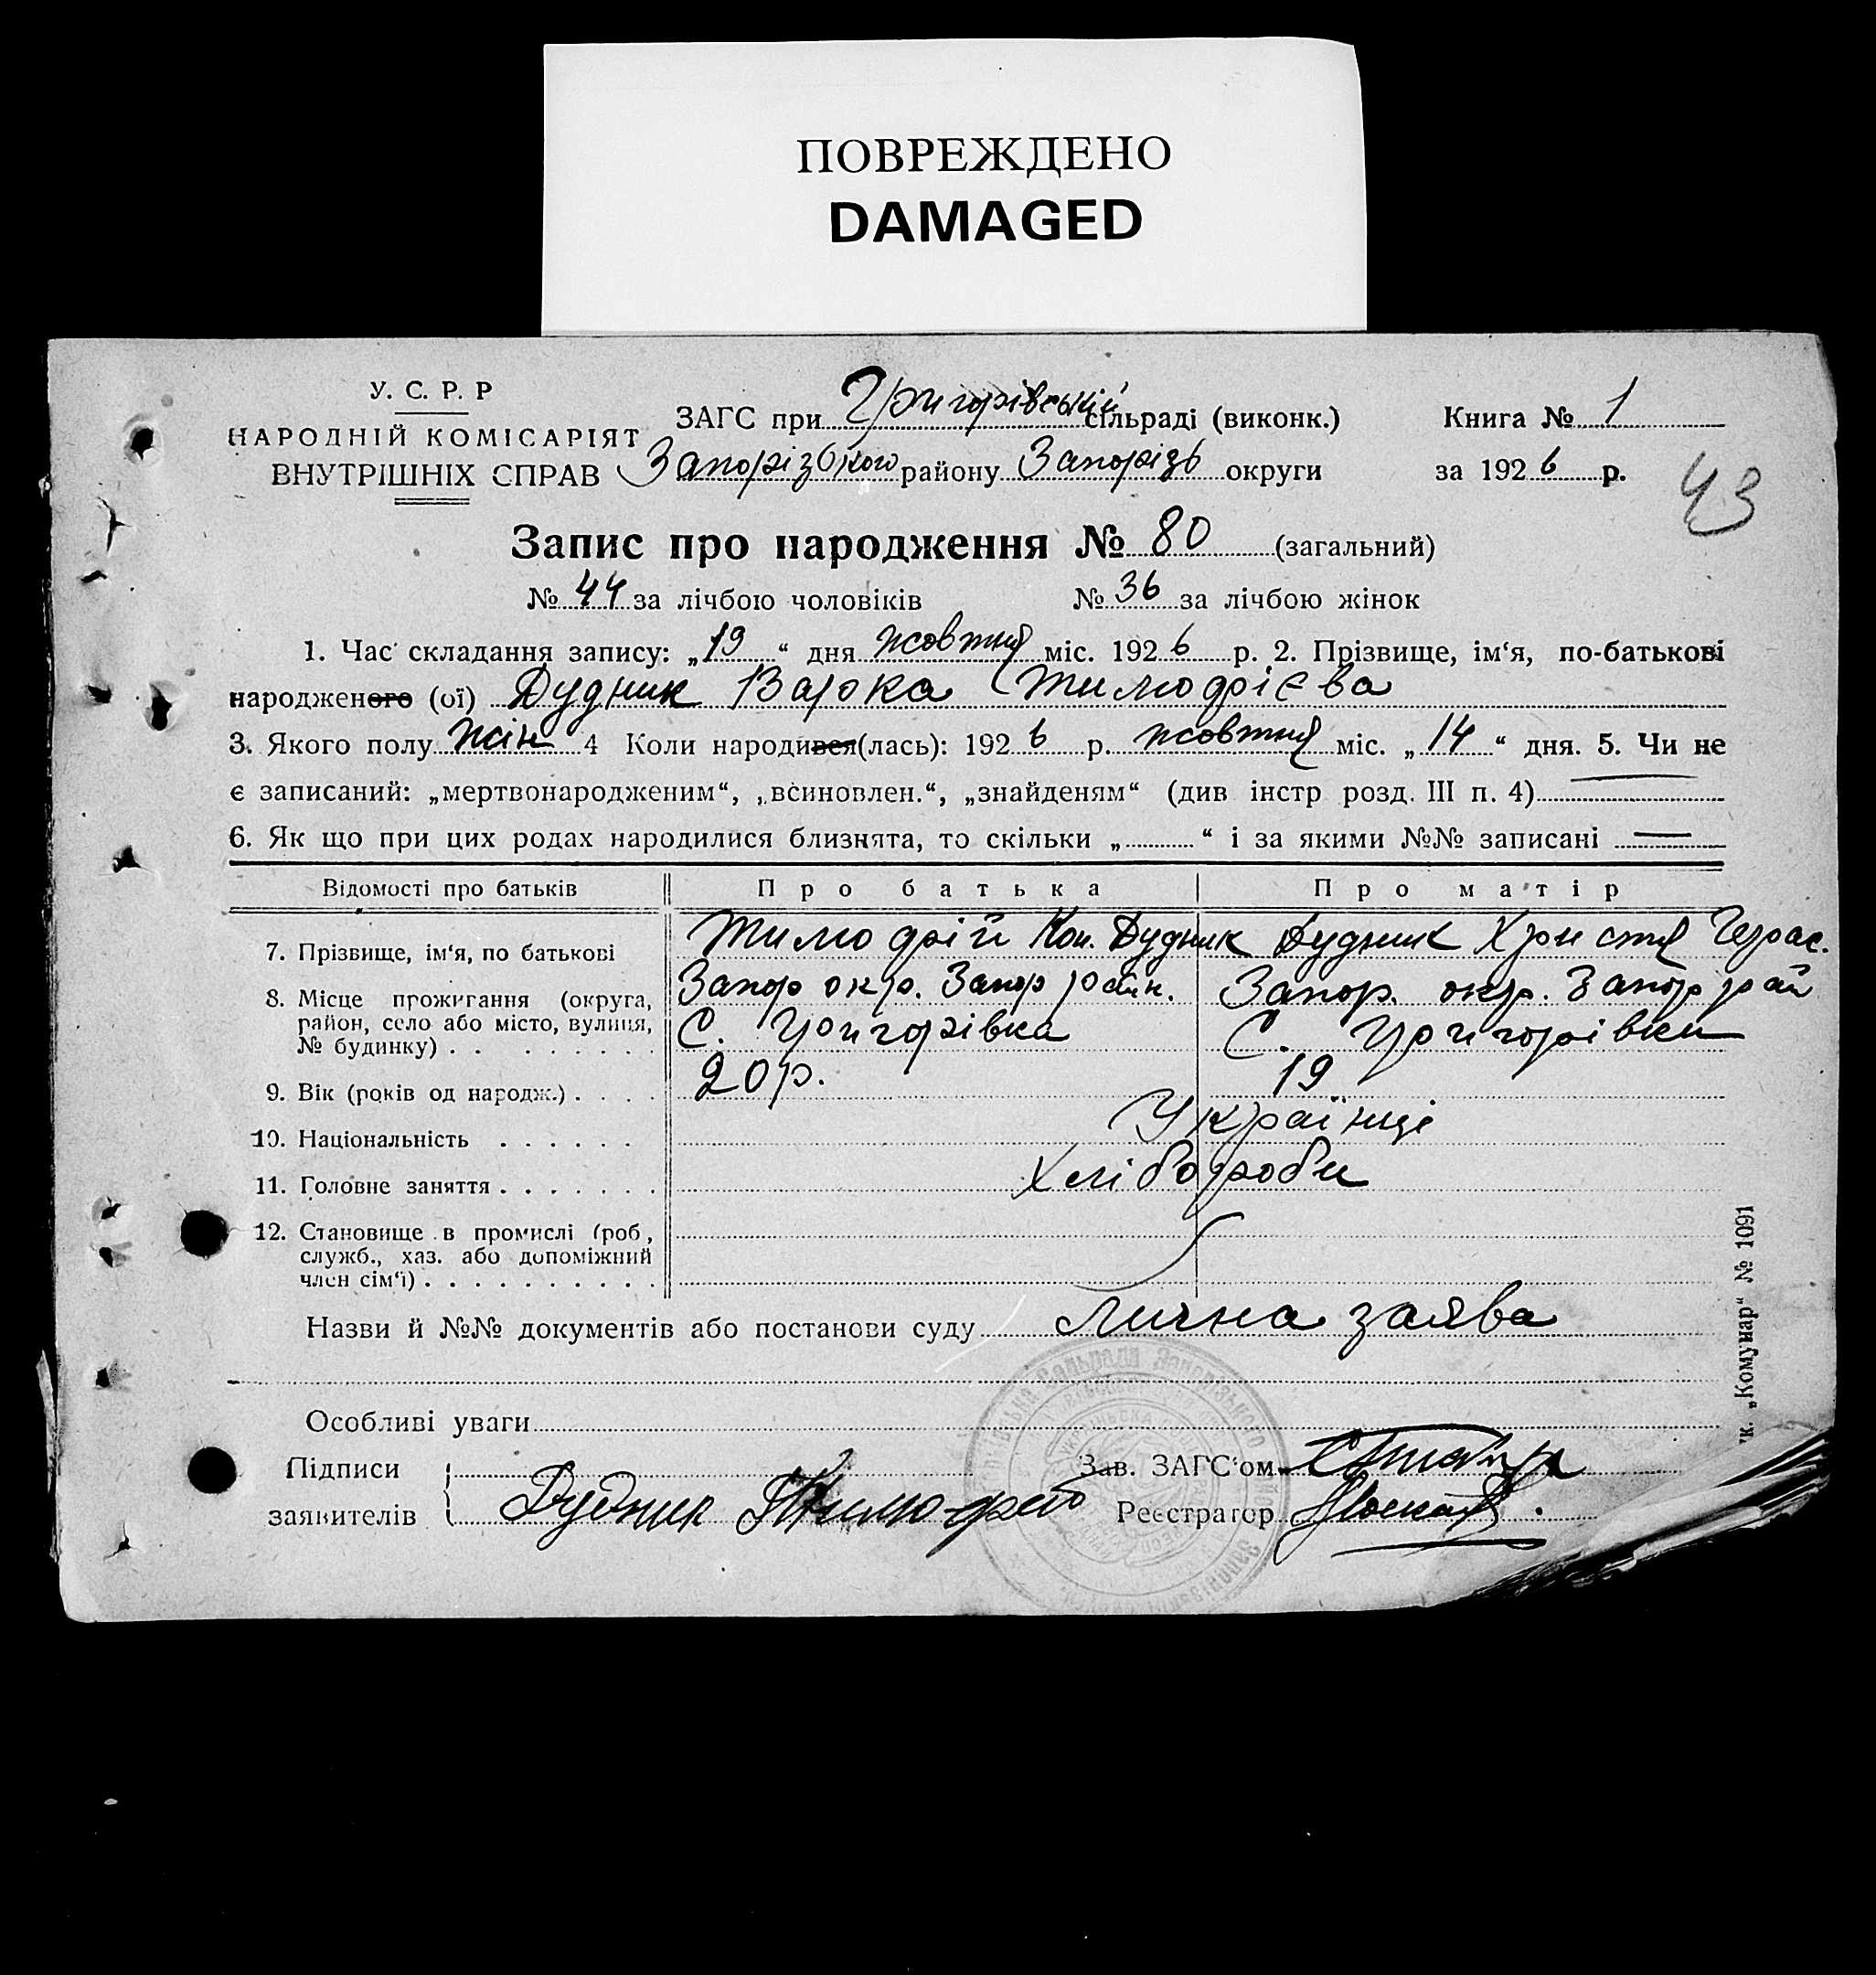 ПОВРЕЖДЕНО
DAMAGED
У. С. Р. Р
НАРОДНІЙ КОМІСАРІЯТ
ВНУТРІШНІХ СПРАВ
ЗАГС при Григорівській сільраді (виконк.)
Запорізького району Запорізь округи
Книга № 1
за 1926 р.
43
Запис про народження № 80 (загальний)
№ 44 за лічбою чоловіків № 36 за лічбою жінок
1. Час складання запису: „19“ дня жовтня міс. 1926 р. 2. Прізвище, ім‘я, по-батькові
народженого (ої) Дудник Варка Тимофієва
3. Якого полу жін 4 Коли народився(лась): 1926 р. жовтня міс. „14“ дня. 5. Чи не
є записаний: „мертвонародженим“, „всиновлен.“, „знайденям“ (див інстр розд. III п. 4)
6. Як що при цих родах народилися близнята, то скільки „ “ і за якими №№ записані
Відомості про батьків Про батька Про матір
7. Прізвище, ім‘я, по батькові Тимофій Кон. Дудник Дудник Христя Герас.
8. Місце прожигання (округа, район, село або місто, вулиця, № будинку) Запор окр. Запор район. С. Григорівка Запор. окр. Запор рай С. Григорівки
9. Вік (років од народж.) 20 р. 19
10. Національність Українці
11. Головне заняття Хлібороби
12. Становище в промислі (роб, служб., хаз. або допоміжний член сім‘ї)
Назви й №№ документів або постанови суду лична заява
Особливі уваги
Підписи заявителів Дудник Тимофей
Зав. ЗАГС‘ом
Реєстратор
"к. „Комунар“ № 1091